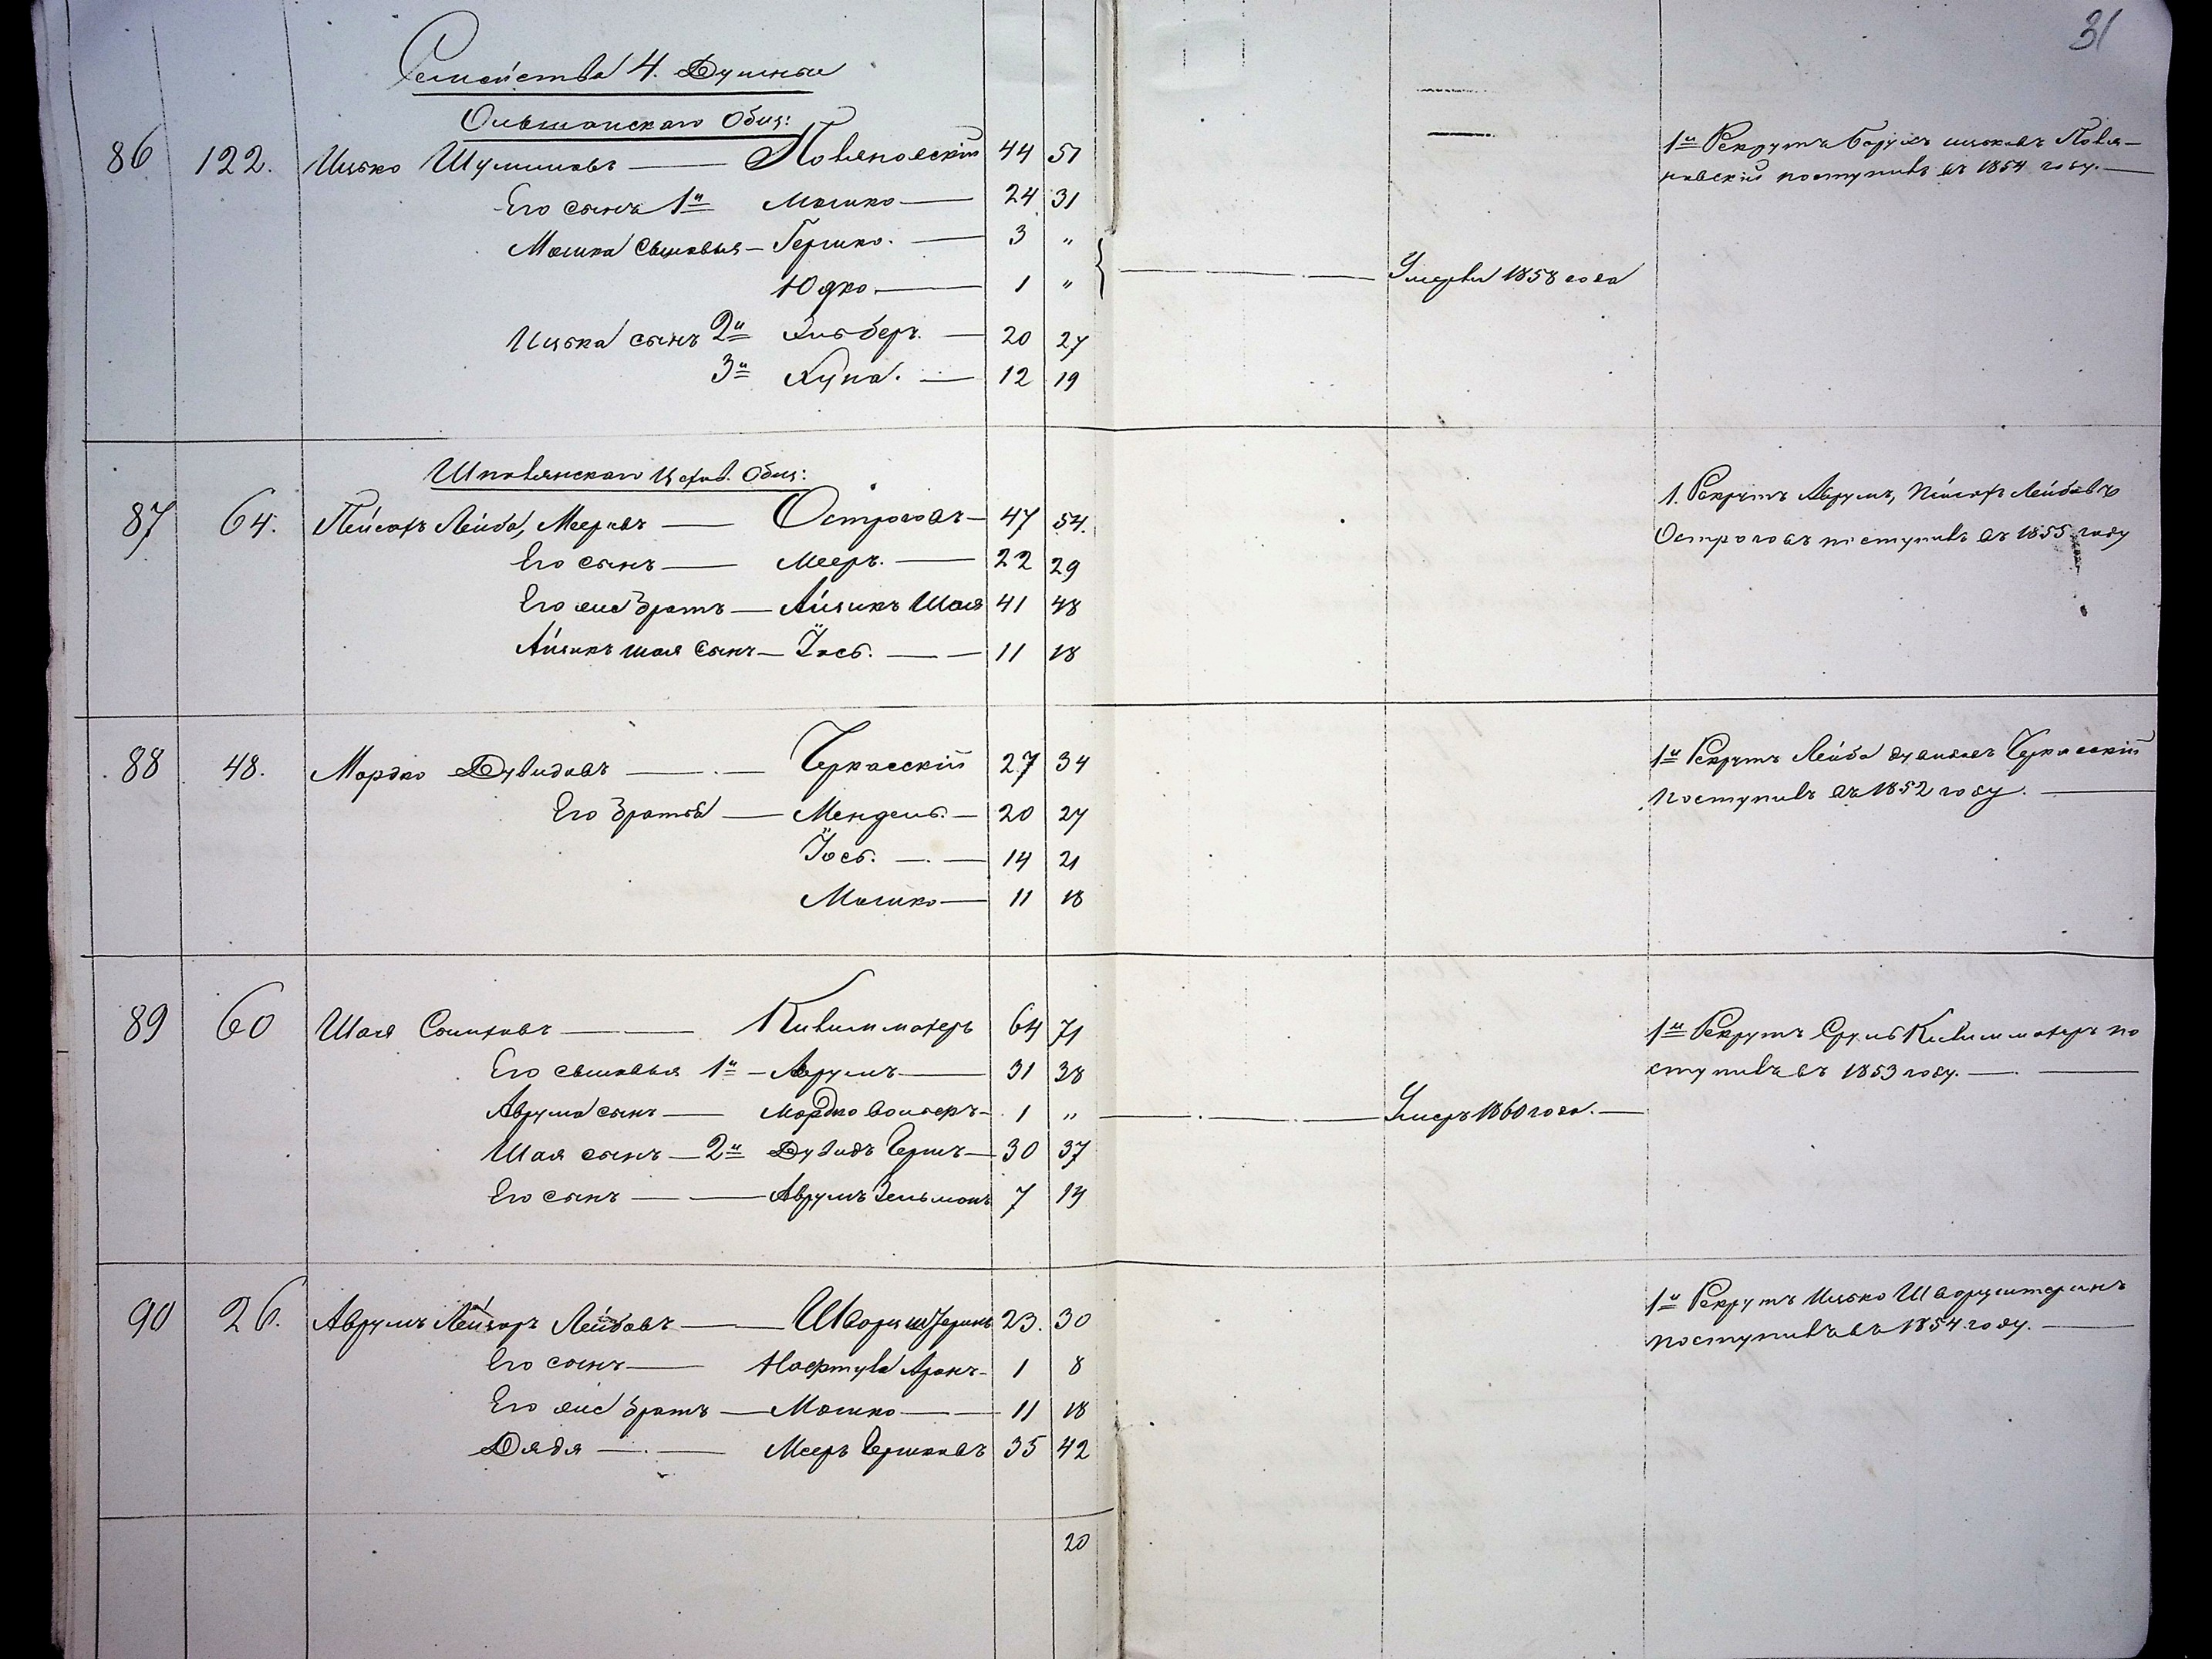 31
Семейства 4. Душныя
Ольшанскаго Общ:
86 122. Ицько Шулимовъ — Повяновскій 44 51
1й Рекрутъ Борухъ ицьковъ Повя-
новскій поступилъ въ 1854 году. —
Его сынъ 1й Мошко — 24 31
Мошка сыновья — Гершко. — 3 "
Юдко — 1 "
Умерли 1858 года
Ицька сынъ 2й Зильберъ. — 20 27
3й Хуна. — 12 19
Шполянскаго Общ:
87 64. Пейсахъ Лейба, Мееровъ — Остроговъ — 47 54.
1. Рекрутъ Аврумъ, Пейсахъ Лейбовъ
Остроговъ поступилъ въ 1855 году
Его сынъ — Мееръ. — 22 29
Его же братъ — Айзикъ Шая 41 48
Айзикъ шая сынъ — Іось. — 11 18
88 48. Мордко Дувидовъ — Черкасскій 27 34
1й Рекрутъ Лейба дувидовъ Черкасскій
поступилъ въ 1852 году. —
Его братья — Мендель. — 20 27
Іось. — 14 21
Мошко — 11 18
89 60 Шая — Кивишмахеръ 64 71
1й Рекрутъ Сруль Кивишмахеръ по
ступилъ въ 1853 году. —
Его сыновья 1й — Аврумъ — 31 38
Аврума сынъ — Мордко Волькеръ — 1 " — Умеръ 1860 года. —
Шая сынъ — 2й Дувидъ Гершъ — 30 37
Его сынъ — Аврумъ Зельманъ 7 14
90 26. Аврумъ Лейзоръ Лейбовъ — Шварцштеринъ 23. 30
1й Рекрутъ Ицько Шварцштеринъ
поступилъ въ 1854 году. —
Его сынъ — Нафтула Аронъ — 1 8
Его же братъ — Мошко — 11 18
Дядя — Мееръ Гершковъ 35 42
20